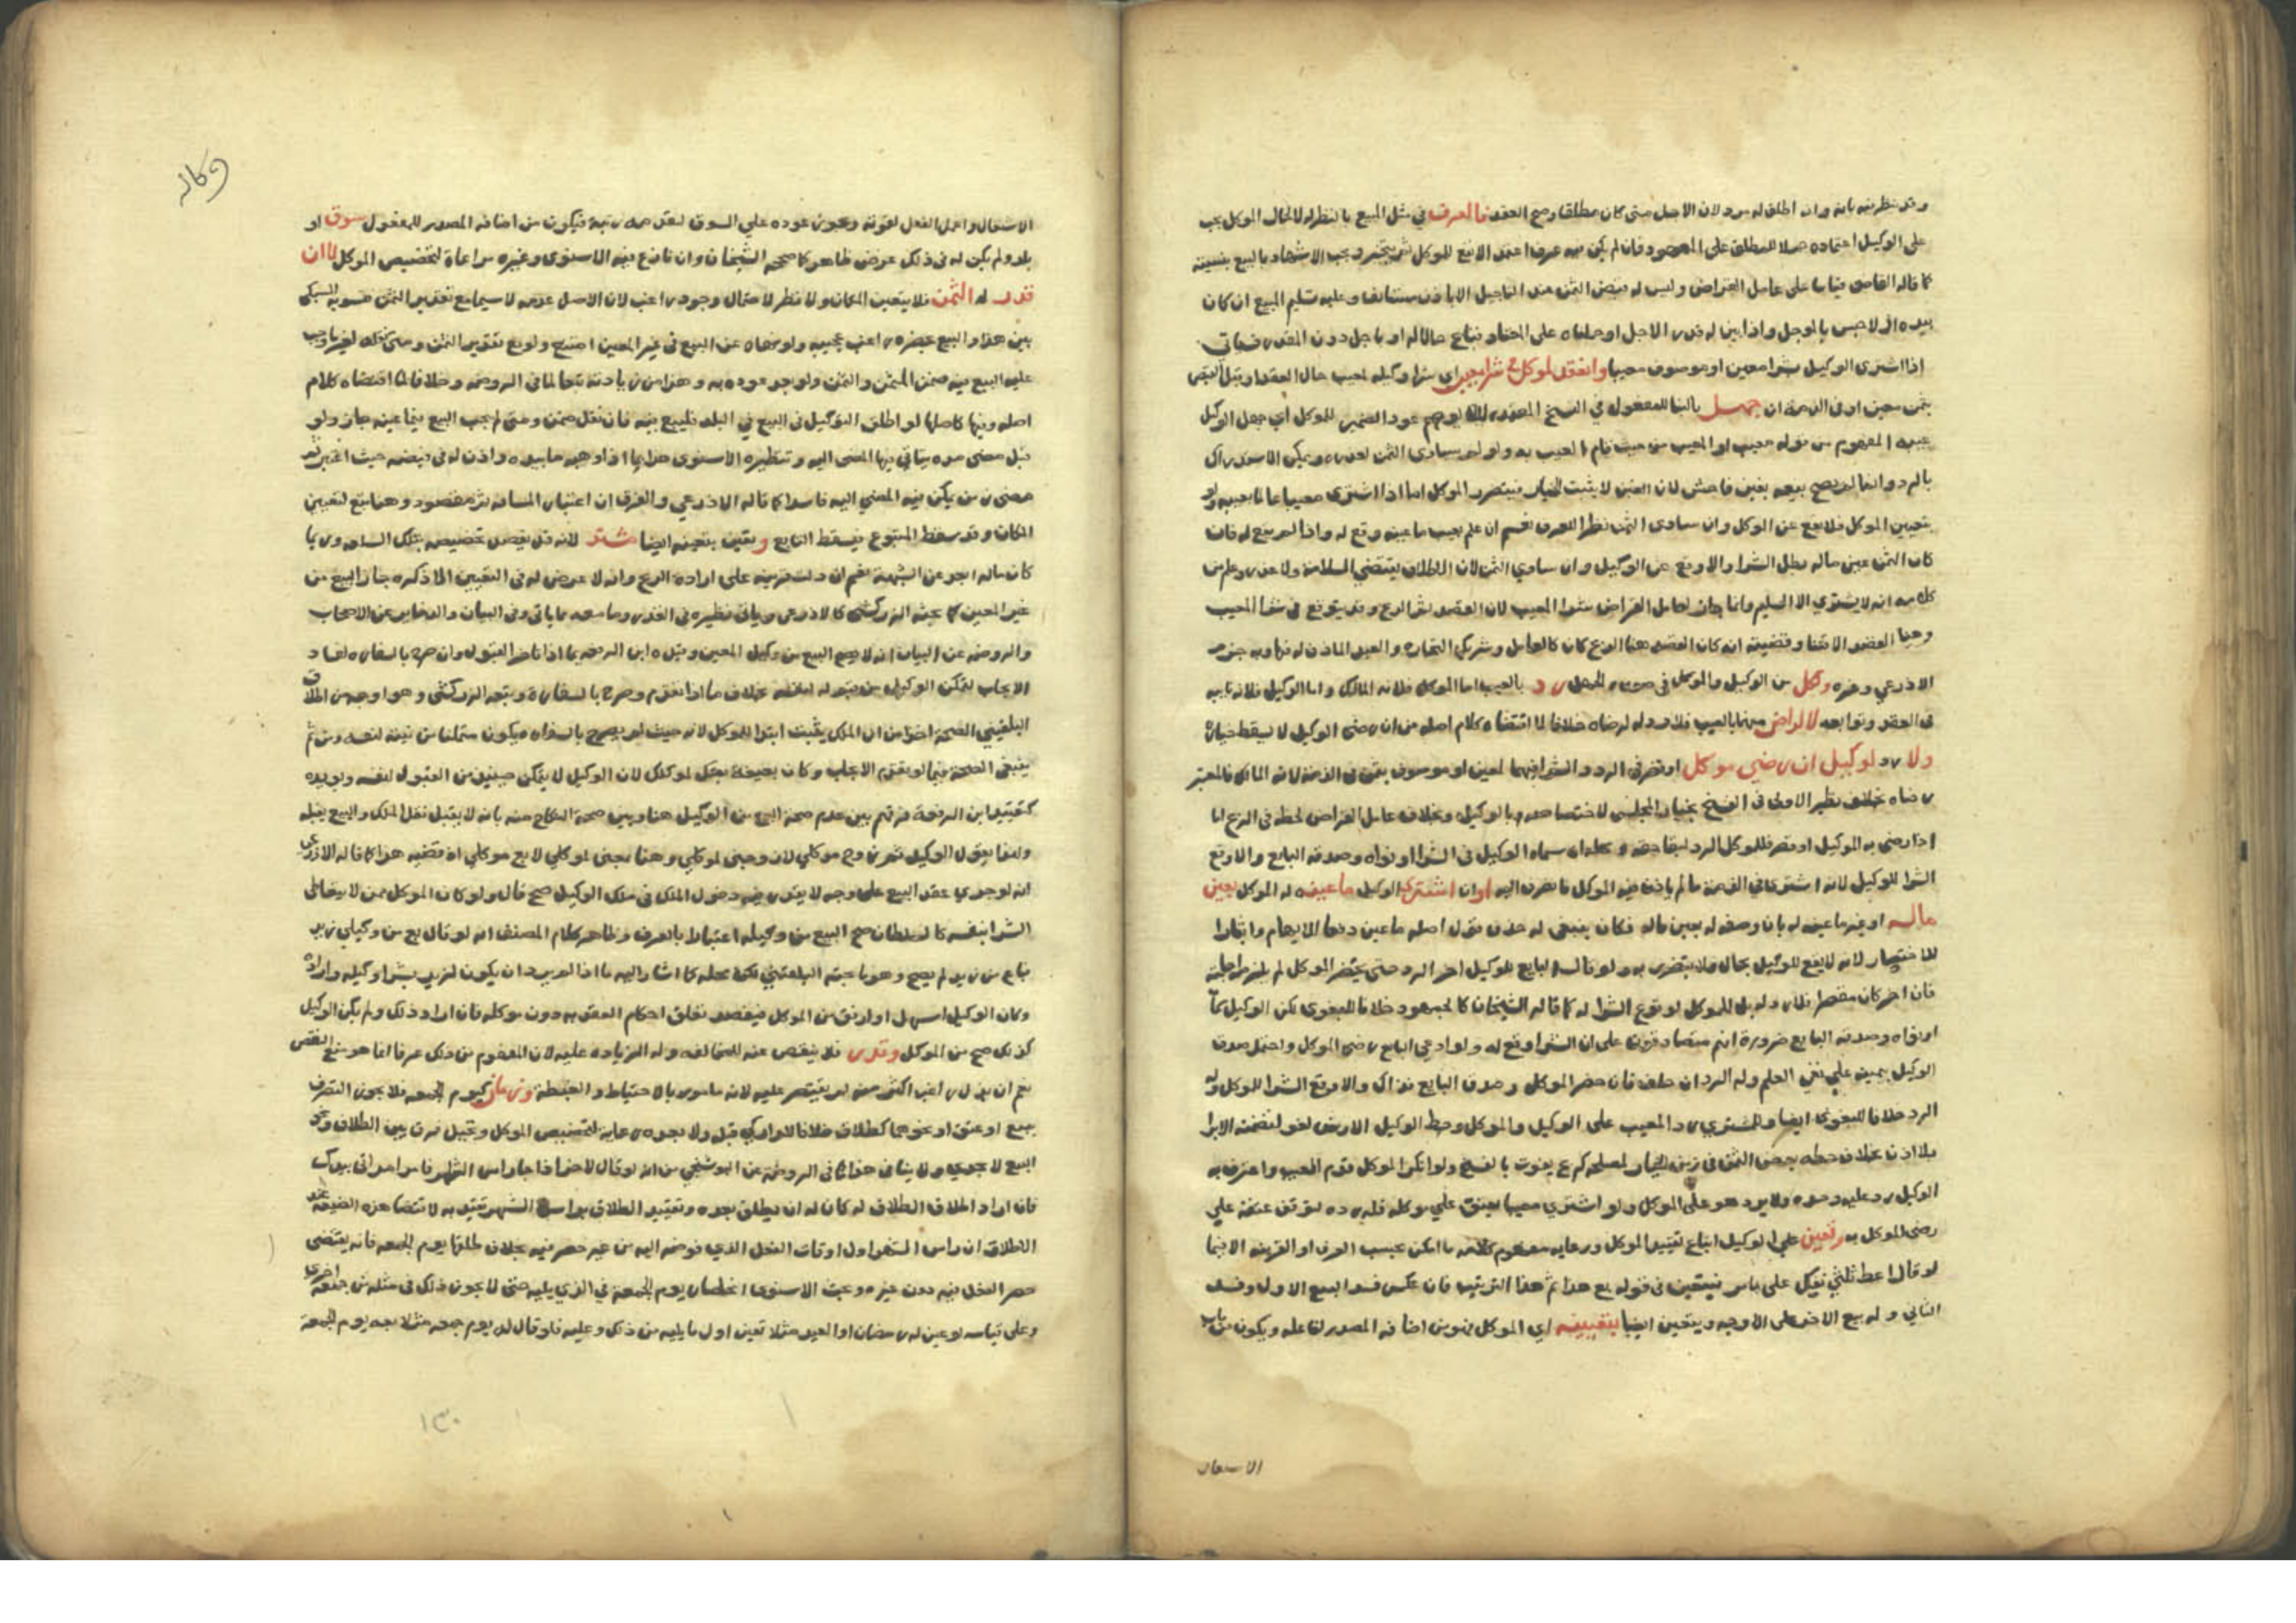 وقد نظر فيه بانه وان اطلق له مرد لان الاجل متى كان مطلقا وصح العقد فالعرف في مثل المبيع بالنظر له لا لحال الموكل يجب
على الوكيل اعتماده حملا للمطلق على المعهود فان لم يكن فيه عرف اعتمد الانفع للموكل ثم يتخير ويجب الاشهاد بالبيع بنسيئة
كما قاله القاضي قياسا على عامل القراض وليس له قبض الثمن عند التاجيل الا باذن مستانف وعليه تسليم المبيع ان كان
بيده اذ لا حبس بالموجل واذا بين له قدر الاجل او حملناه على المعتاد فباع حالا له او باجل دون المقدر فسياتي
اذا اشترى الوكيل بشرا معين او موصوف معيبا وانعقد لموكل شرا معيب اي شرا وكيله لمعيب حال العقد او قبل القبض
بثمن معين او في الذمة ان جهل بالبنا للمفعول في النسخ المعتمدة ليلا يوهم عود الضمير للموكل اي جهل الوكيل
عيبه المفهوم من قوله معيب او المعيب من حيث قام العيب به ولو لم يساوي الثمن لعذره ويمكن الاستدراك
بالرد وانما لم يصح بيعه بغبن فاحش لان الغبن لا يثبت الخيار فيتضرر الموكل اما اذا اشترى معيبا عالما بعيبه ولو
بتعيين الموكل فلا يقع عن الموكل وان ساوى الثمن نظرا للعرف نعم ان علم بعيب ما عينه وقع له واذا لم يقع له فان
كان الثمن عين ماله بطل الشرا والا وقع عن الوكيل وان ساوى الثمن لان الاطلاق يقتضي السلامة ولا عذر وعلم من
كلامه انه لا يشتري الا السليم وانما جاز لعامل القراض شرا المعيب لان القصد ثم الربح وقد يتوقع في شرا المعيب
وهنا القصد الاقتنا وقضيته انه كان القصد هنا الربح كان كالعامل وشريك التجارة والعبد الماذون له فيها وبه جزم
الاذرعي وغيره وكل من الوكيل والموكل في صورة الجهل رد بالعيب اما الموكل فلانه المالك واما الوكيل فلانه نايبه
في العقد وتوابعه لا لراض منهما بالعيب فلا رد له لرضاه خلافا لما اقتضاه كلام اصله من ان رضى الوكيل لا يسقط خياره
ولا رد لوكيل ان رضي موكل او قصر في الرد والشرا فيهما لمعين او موصوف بثمن في الذمة لانه المالك فالمعتبر
رضاه بخلاف نظيره الاولى في الفسخ بخيار المجلس لاختصاصه بالوكيل وبخلاف عامل القراض لحظه في الربح اما
اذا رضي به الوكيل او قصر فللموكل الرد لبقا حقه ومحله ان سماه الوكيل في الشرا او نواه وصدقه البايع والا وقع
الشرا للوكيل لانه اشترى في الذمة ما لم ياذن فيه الموكل فانصرف اليه او ان اشترى الوكيل ما عينه له الموكل بعين
ماله او غير ما عينه له بان وصفه له بعين ماله فكان ينبغي له حذف قول اصله ما عين دفعا للايهام وايثارا
للاختصار لانه لا يقع للوكيل بحال فلا يتضرر به ولو قال البايع للوكيل اخر الرد حتى يحضر الموكل لم يلزمه اجابته
فان اخر كان مقصرا فلا رد له بل للموكل لوقوع الشرا له كما قاله الشيخان كالجمهور خلافا للبغوي لكن الوكيل سماه
او نواه وصدقه البايع ضرورة انهم متصادقون على ان الشرا وقع له ولو ادعى البايع رضى الموكل واحتمل صدق
الوكيل بيمينه على نفي العلم وله الرد ان حلف فان حضر الموكل وصدق البايع فذاك والا وقع الشرا للموكل وله
الرد خلافا للبغوي ايضا وللمشتري رد المعيب على الوكيل والموكل وحط الوكيل الارش لغو لتضمنه الابرا
بلا اذن بخلاف حطه بعض الثمن في زمن الخيار لمصلحة كربح يفوت بالفسخ ولو انكر الموكل قدم المعيب واعترف به
الوكيل رد عليه وحده ولا يرد هو على الموكل ولو اشترى معيبا يعتق على موكله فله رده لتوقف عتقه على
رضى الموكل به وتعين على الوكيل اتباع تقييد الموكل ورعاية مفهوم كلامه ما امكن بحسب العرف او القرينة الا فيما
لو قال اعط ثلثي لكل على باس فيتعين في قوله بع هذا ثم هذا الترتيب فان عكس فسد البيع الاول وفسد
الثاني وله بيع الاخر على الاوجه ويتعين ايضا بتعيينه اي الموكل فهو من اضافة المصدر لفاعله ويكون من باب
الاشتغال
وكاله
الاشتغال واعمل الفعل لقوته ويجوز عوده على السوق لتقدمه رتبة فيكون من اضافة المصدر للمفعول سوق او
بلد ولم يكن له في ذلك غرض ظاهر كما صححه الشيخان وان نازع فيه الاسنوي وغيره مراعاة لتخصيص الموكل لا ان
قدر له الثمن فلا يتعين المكان ولا نظر لاحتمال وجود راغب لان الاصل عدمه لا سيما مع تقدير الثمن تسوية السبكي
بين هذا والبيع بحضرة راغب عجيبة ولو نهاه عن البيع في غير المعين امتنع ولو مع تقدير الثمن ومتى نقله لغير ما وجب
عليه البيع فيه ضمن المثمن والثمن ولو جر عوده به وهذا من زيادته تبعا لما في الروضة وخلافا لما اقتضاه كلام
اصله وفيها كاصلها لو اطلق التوكيل في البيع في البلد فليبع فيه فان نقل ضمن ومتى لم يجب البيع فيما عينه جاز ولو
قبل مضي مدة يتاتى فيها المضي اليه وتنظيره الاسنوي هذا بما اذا وهبه ما بيده واذن له في قبضه حيث اعتبر ثم
مضي زمن يمكن فيه المضي اليه فاسد كما قاله الاذرعي والفرق ان اعتبار المسافة ثم مقصود وهنا تبع لتعيين
المكان وقد سقط المتبوع فيسقط التابع ويتعين بتعيينه ايضا مشتر لانه قد يقصد تخصيصه بتلك السلعة وربما
كان ماله ابعد عن الشبهة نعم ان دلت قرينة على ارادة الربح وانه لا غرض له في التعيين الا ما ذكره جاز البيع من
غير المعين كما بحثه الزركشي كالاذرعي وياتي نظيره في القدر وما معه مما ياتي وفي البيان والذخاير عن الاصحاب
والروضة عن البيان انه لا يصح البيع من وكيل المعين وقيده ابن الرفعة بما اذا تاخر القبول وان صرح بالسفارة لفساد
الايجاب لتمكن الوكيل من قبوله لنفسه بخلاف ما اذا تقدم وصرح بالسفارة وتبعه الزركشي وهو اوجه من اطلاق
البلقيني الصحة اخذا من ان الملك يثبت ابتدا للموكل لانه حيث لم يصرح بالسفارة يكون متمكنا من نيته لنفسه ومن ثم
ينبغي الصحة فيما لو تقدم الايجاب وكان بصيغة بعتك لموكلك لان الوكيل لا يتمكن حينئذ من القبول لنفسه ويويده
كتقييد ابن الرفعة فرقهم بين عدم صحة البيع من الوكيل هنا وبين صحة النكاح منه بانه لا يقبل نقل الملك والبيع يقبله
وانما يقول الوكيل ثم زوج موكلي لان وجهي لموكلي وهنا بعني لموكلي لا بع موكلي اذ قضيته هذا كما قاله الاذرعي
انه لو جرى عقد البيع على وجه لا يقدر فيه دخول الملك في ملك الوكيل صح قال ولو كان الموكل ممن لا يتعاطى
الشرا بنفسه كالسلطان صح البيع من وكيله اعتبارا بالعرف وظاهر كلام المصنف انه لو قال بع من وكيل زيد
فباع من زيد لم يصح وهو ما بحثه البلقيني لكن محله كما اشار اليه ما اذا لم يرد ان يكون لزيد بشرا وكيله واراده
وكان الوكيل اسهل او ارفق من الموكل فيقصد تعلق احكام العقد به دون موكله فان اراد ذلك ولم يكن الوكيل
كذلك صح من الموكل وقدر فلا ينقص عنه للمخالفة وله الزيادة عليه لان المفهوم من ذلك عرفا انما هو منع النقص
نعم ان بذل راغب اكثر منه لم يقتصر عليه لانه مامور بالاحتياط والغبطة وزمان كيوم الجمعة فلا يجوز التصرف
ببيع او عتق او نحوهما كطلاق خلافا للداركي قبله ولا بعده رعاية لتخصيص الموكل وتخيل فرق بين الطلاق ونحو
البيع لا يجدي ولا ينافي هذا ما في الروضة عن البوشنجي من انه لو قال لاخر اذا جا راس الشهر فامر امراتي بيدك
فان اراد اطلاق الطلاق له كان له ان يطلق بعده وتقييد الطلاق براس الشهر تقيد به لاقتضا هذه الصيغة عند
الاطلاق ان راس الشهر اول اوقات الفعل الذي فوضه اليه من غير حصر فيه بخلاف طلقها يوم الجمعة فانه يقتضي
حصر الفعل فيه دون غيره وبحث الاسنوي انحصار يوم الجمعة في الذي يليه حتى لا يجوز ذلك في مثله من جمعة اخرى
وعلى قياسه لو عين له رمضان او العيد مثلا تعين اول ما يليه من ذلك وعليه فلو قال له يوم جمعة مثلا بعه يوم الجمعة
١٣٠